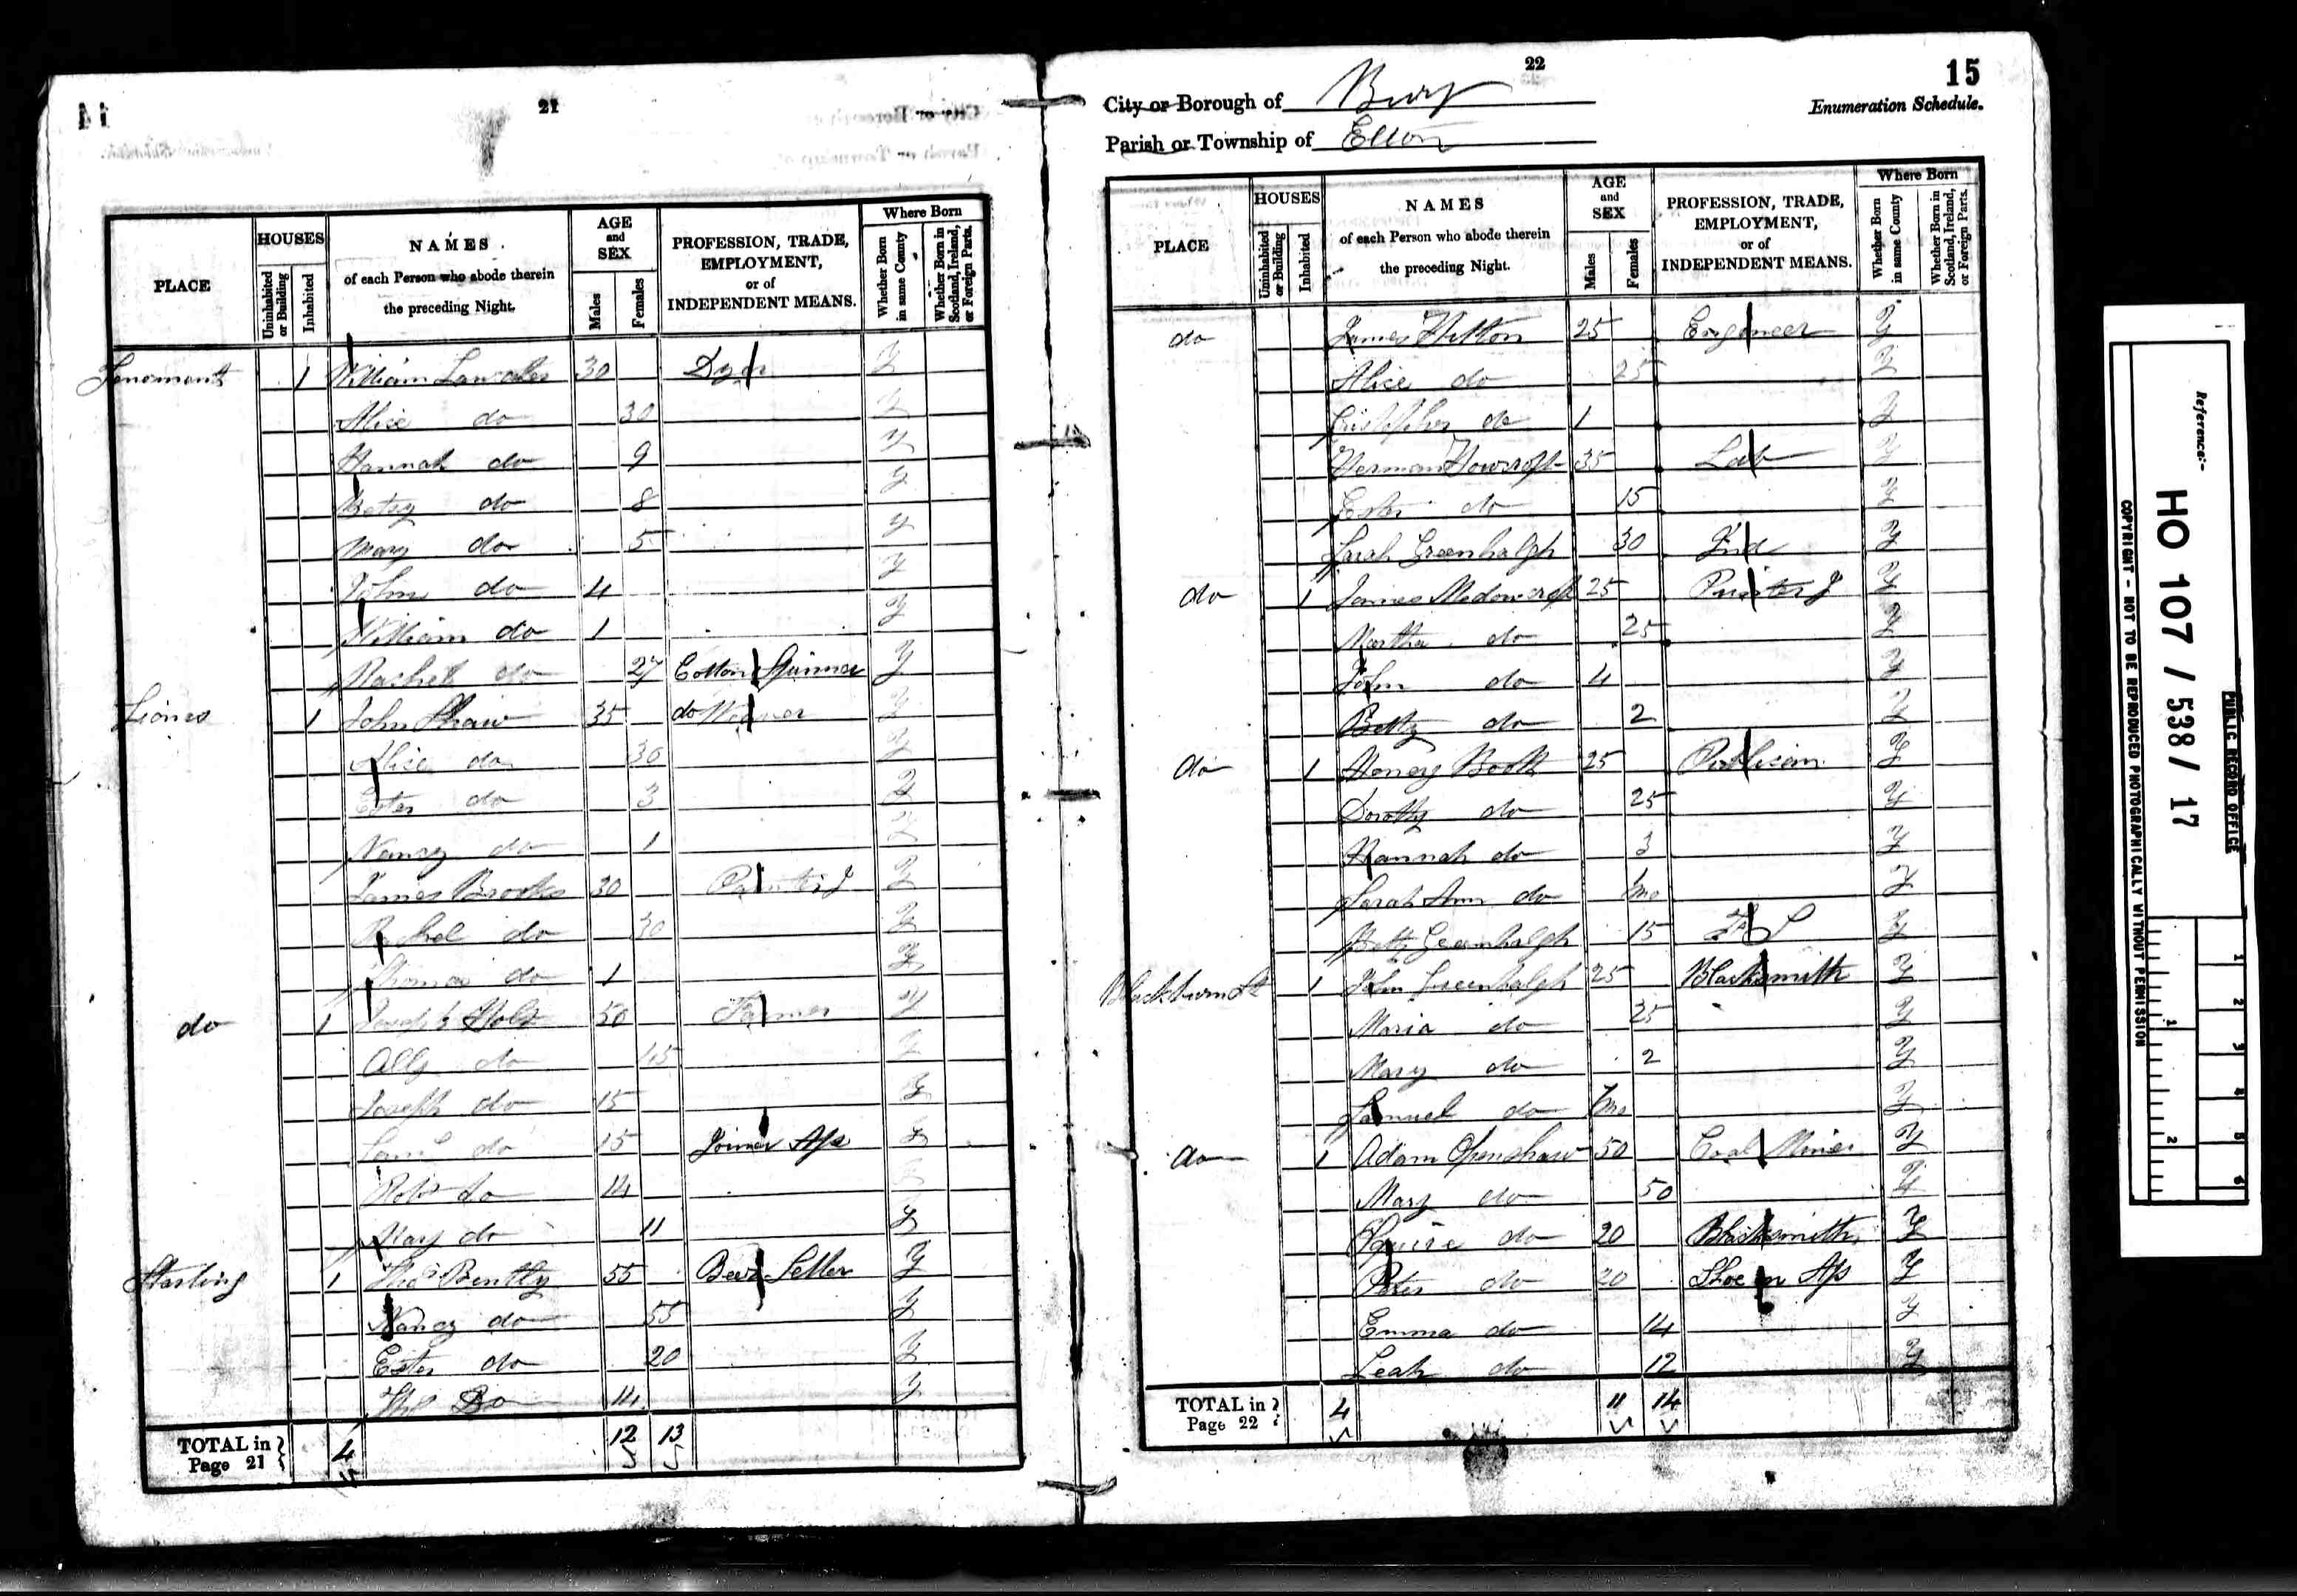 21
PLACE
HOUSES
Uninhabited or Building
Inhabited
NAMES
of each Person who abode therein
the preceding Night.
AGE and SEX
Males
Females
PROFESSION, TRADE,
EMPLOYMENT,
or of
INDEPENDENT MEANS.
Where Born
Whether Born in same County
Whether Born in Scotland, Ireland, or Foreign Parts.
1 William 30 Dyer Y
Alice do 30 Y
Hannah do 9 Y
Betsy do 8 Y
Mary do 5 Y
John do 4 Y
William do 1 Y
Rachel do 27 Cotton Spinner Y
1 John Shaw 35 do Y
Alice do 30 Y
Ester do 3 Y
Nancy do 1 Y
James Brooks 30 J Y
Rachel do 30 Y
Thomas do 1 Y
do 1 Joseph Holt 50 Farmer Y
Ally do 45 Y
Joseph do 15 Y
Saml do 15 Joiner Ap Y
Robt do 14
Mary do 11 Y
Starling 1 Thos Bently 55 Beer Seller Y
Nancy do 55 Y
Ester do 20 Y
Thos Do 14 Y
TOTAL in Page 21 4 12 13
22
15
City or Borough of Bury
Enumeration Schedule.
Parish or Township of Elton
PLACE
HOUSES
Uninhabited or Building
Inhabited
NAMES
of each Person who abode therein
the preceding Night.
AGE and SEX
Males
Females
PROFESSION, TRADE,
EMPLOYMENT,
or of
INDEPENDENT MEANS.
Where Born
Whether Born in same County
Whether Born in Scotland, Ireland, or Foreign Parts.
do James Hilton 25 Engineer Y
Alice do 25 Y
do 1 Y
Howcroft 35 Lab Y
Ester do 15 Y
Sarah Greenhalgh 30 Ind Y
do 1 James Medowcroft 25 Printer J Y
Martha do 25 Y
John do 4 Y
Betty do 2 Y
do 1 Henry Booth 25 Publican Y
Dorothy do 25 Y
Hannah do 3 Y
Sarah Ann do Y
Betty Greenhalgh 15 F S Y
Blackburn St 1 John Greenhalgh 25 Blacksmith Y
Maria do 25 Y
Mary do 2 Y
Samuel do Y
do 1 Adam Openshaw 50 Coal Miner Y
Mary do 50 Y
Squire do 20 Blacksmith Y
Peter do 20 Shoe m Ap Y
Emma do 14 Y
Leah do 12 Y
TOTAL in Page 22 4 11 14
Reference:-
HO 107 / 538 / 17
PUBLIC RECORD OFFICE
COPYRIGHT - NOT TO BE REPRODUCED PHOTOGRAPHICALLY WITHOUT PERMISSION